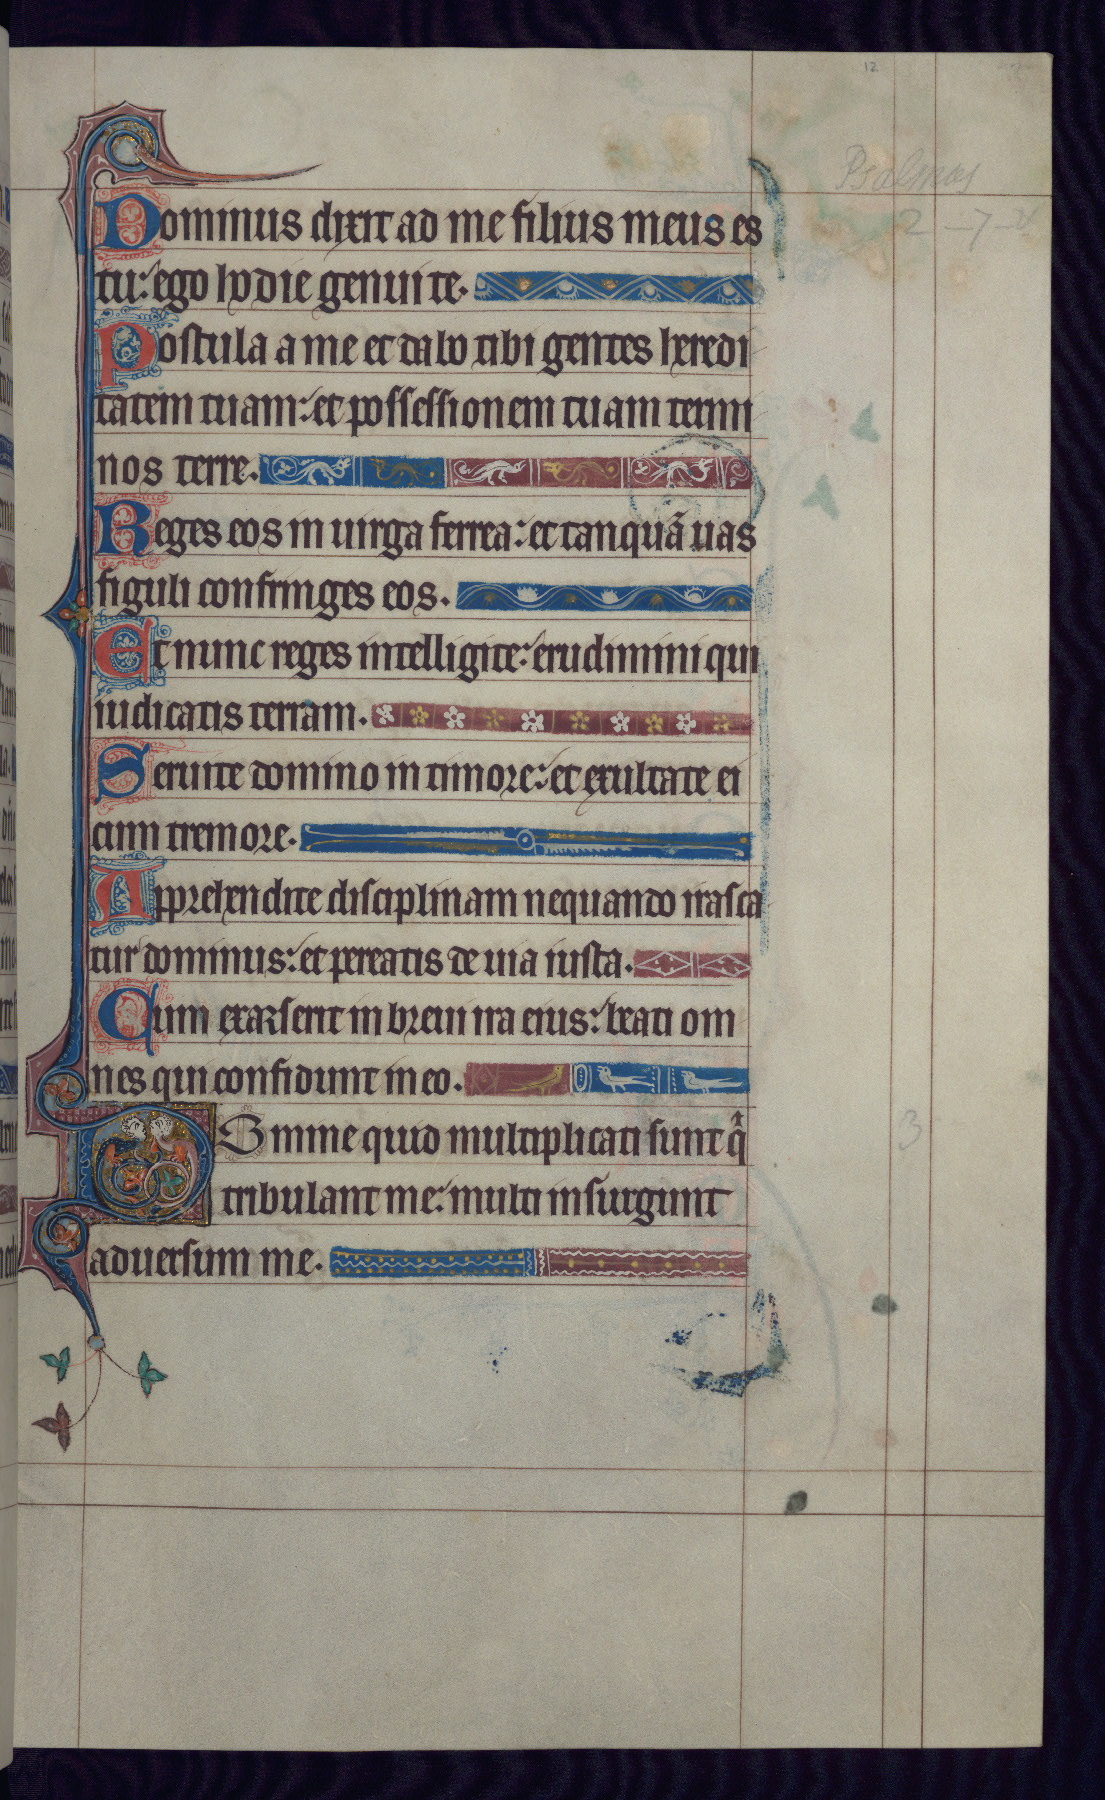 12
Psalmus
2 - 7 -
Dominus dixit ad me filius meus es
tu: ego hodie genui te.
Postula a me et dabo tibi gentes heredi
tatem tuam: et possessionem tuam termi
nos terre.
Reges eos in uirga ferrea: et tanquã uas
figuli confringes eos.
Et nunc reges intelligite: erudimini qui
iudicatis terram.
Seruite domino in timore: et exultate ei
cum tremore.
Apprehendite disciplinam nequando irasca
tur dominus: et pereatis de uia iusta.
Cum exarserit in breui ira eius: beati om
nes qui confidunt in eo.
Domine quid multiplicati sunt q̃
3
tribulant me: multi insurgunt
aduersum me.